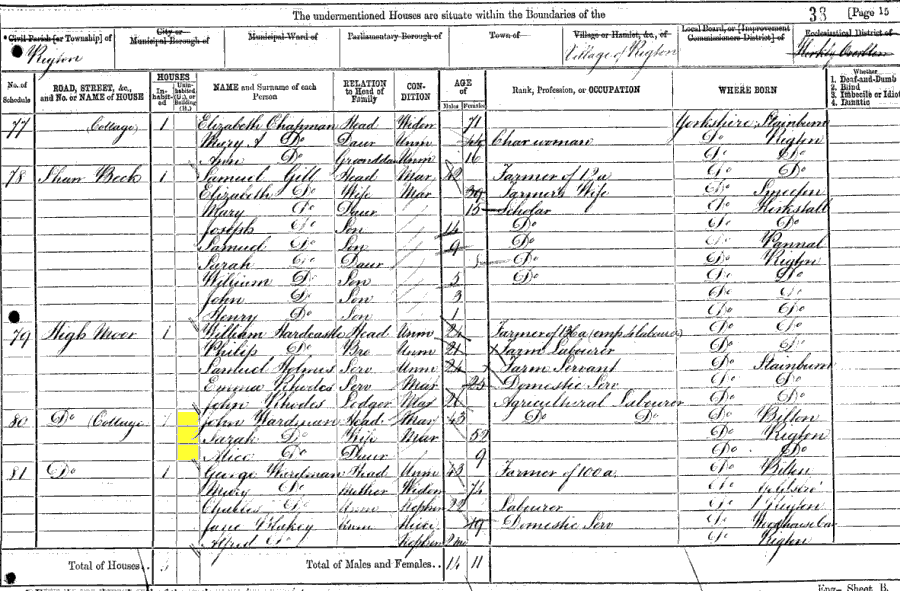 The undermentioned Houses are situate within the Boundaries of the 38 [Page 15
Civil Parish [or Township] of City or Municipal Borough of Municipal Ward of Parliamentary Borough of Town of Village or Hamlet, &c., of Local Board, or [Improvement Commissioners District] of Ecclesiastical District of
Rigton Village of Rigton
No. of Schedule ROAD, STREET, &c., and No. or NAME of HOUSE HOUSES Inhabited Uninhabited (U.), or Building (B.) NAME and Surname of each Person RELATION to Head of Family CONDITION AGE of Males Females Rank, Profession, or OCCUPATION WHERE BORN Whether 1. Deaf-and-Dumb 2. Blind 3. Imbecile or Idiot 4. Lunatic
77 Cottage 1 Elizabeth Chapman Head Widow 71 Yorkshire Stainburn
Mary Do Daur Unm 44 Charwoman Do Rigton
Ann Do Granddaur Unm 16 Do Do
78 Shaw Beck 1 Samuel Gill Head Mar 42 Farmer of 12 a Do Do
Elizabeth Do Wife Mar Farmer's Wife Do
Mary Do Daur 15 Scholar Do Kirkstall
Joseph Do Son 14 Do Do Do
Samuel Do Son 9 Do Do Pannal
Sarah Do Daur Do Do Rigton
William Do Son 5 Do Do Do
John Do Son 3 Do Do
Henry Do Son 1 Do Do
79 High Moor 1 William Hardcastle Head Unm 24 Farmer of 136 a (emp 1 Labourer) Do Do
Philip Do Bro Unm 21 Farm Labourer Do Do
Samuel Holmes Serv Unm 24 Farm Servant Do Stainburn
Emma Rhodes Serv Mar 25 Domestic Serv Do Do
John Rhodes Lodger Mar Agricultural Labourer Do Do
80 Do Cottage 1 John Wardman Head Mar 43 Do Do Do Bilton
Sarah Do Wife Mar 52 Do Rigton
Alice Do Daur 9 Do Do
81 Do 1 George Wardman Head Unm 43 Farmer of 100 a Do Bilton
Mary Do Mother Widow 74 Do
Charles Do Unm Nephew 22 Labourer Do Rigton
Jane Blakey Unm Niece 19 Domestic Serv Do
Alfred Do Nephew 2 mo Do Rigton
Total of Houses.. Total of Males and Females.. 14 11
Eng.—Sheet B.